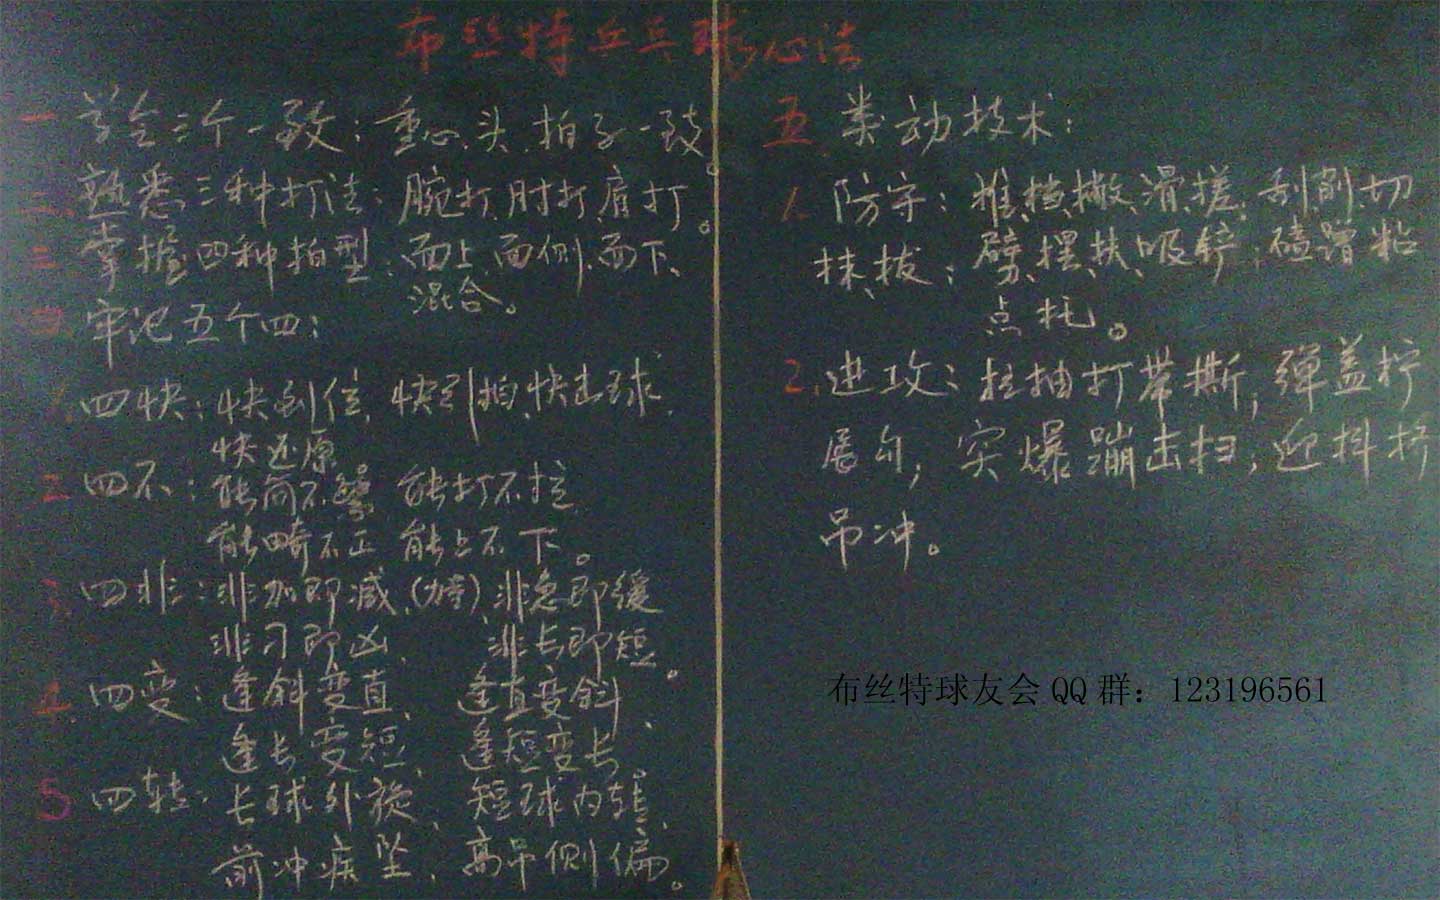 布丝特乒乓球心法
一 学会三个一致：重心、头、拍子一致。
二、熟悉三种打法：腕打、肘打、肩打。
三 掌握四种拍型：面上、面侧、面下、
混合。
四 牢记五个四：
1. 四快：快到位、快引拍、快击球、
快还原
2 四不：能简不繁 能打不拉
能畸不正 能上不下。
3. 四非：非加即减、 非急即缓
非刁即凶、 非长即短。
4. 四变：逢斜变直、 逢直变斜、
逢长变短、 逢短变长。
5 四转：长球外旋、 短球内转、
前冲疾坠、 高吊侧偏。
五 类动技术：
1. 防守：推、挡、撇、滑、搓、刮、削、切
抹、拔；劈、摆、扶、吸、铲；磕蹭粘
点托。
2. 进攻：拉抽打带撕，弹盖拧
展勾，突爆蹦击扫；迎抖挤
吊冲。
布丝特球友会 QQ 群：123196561